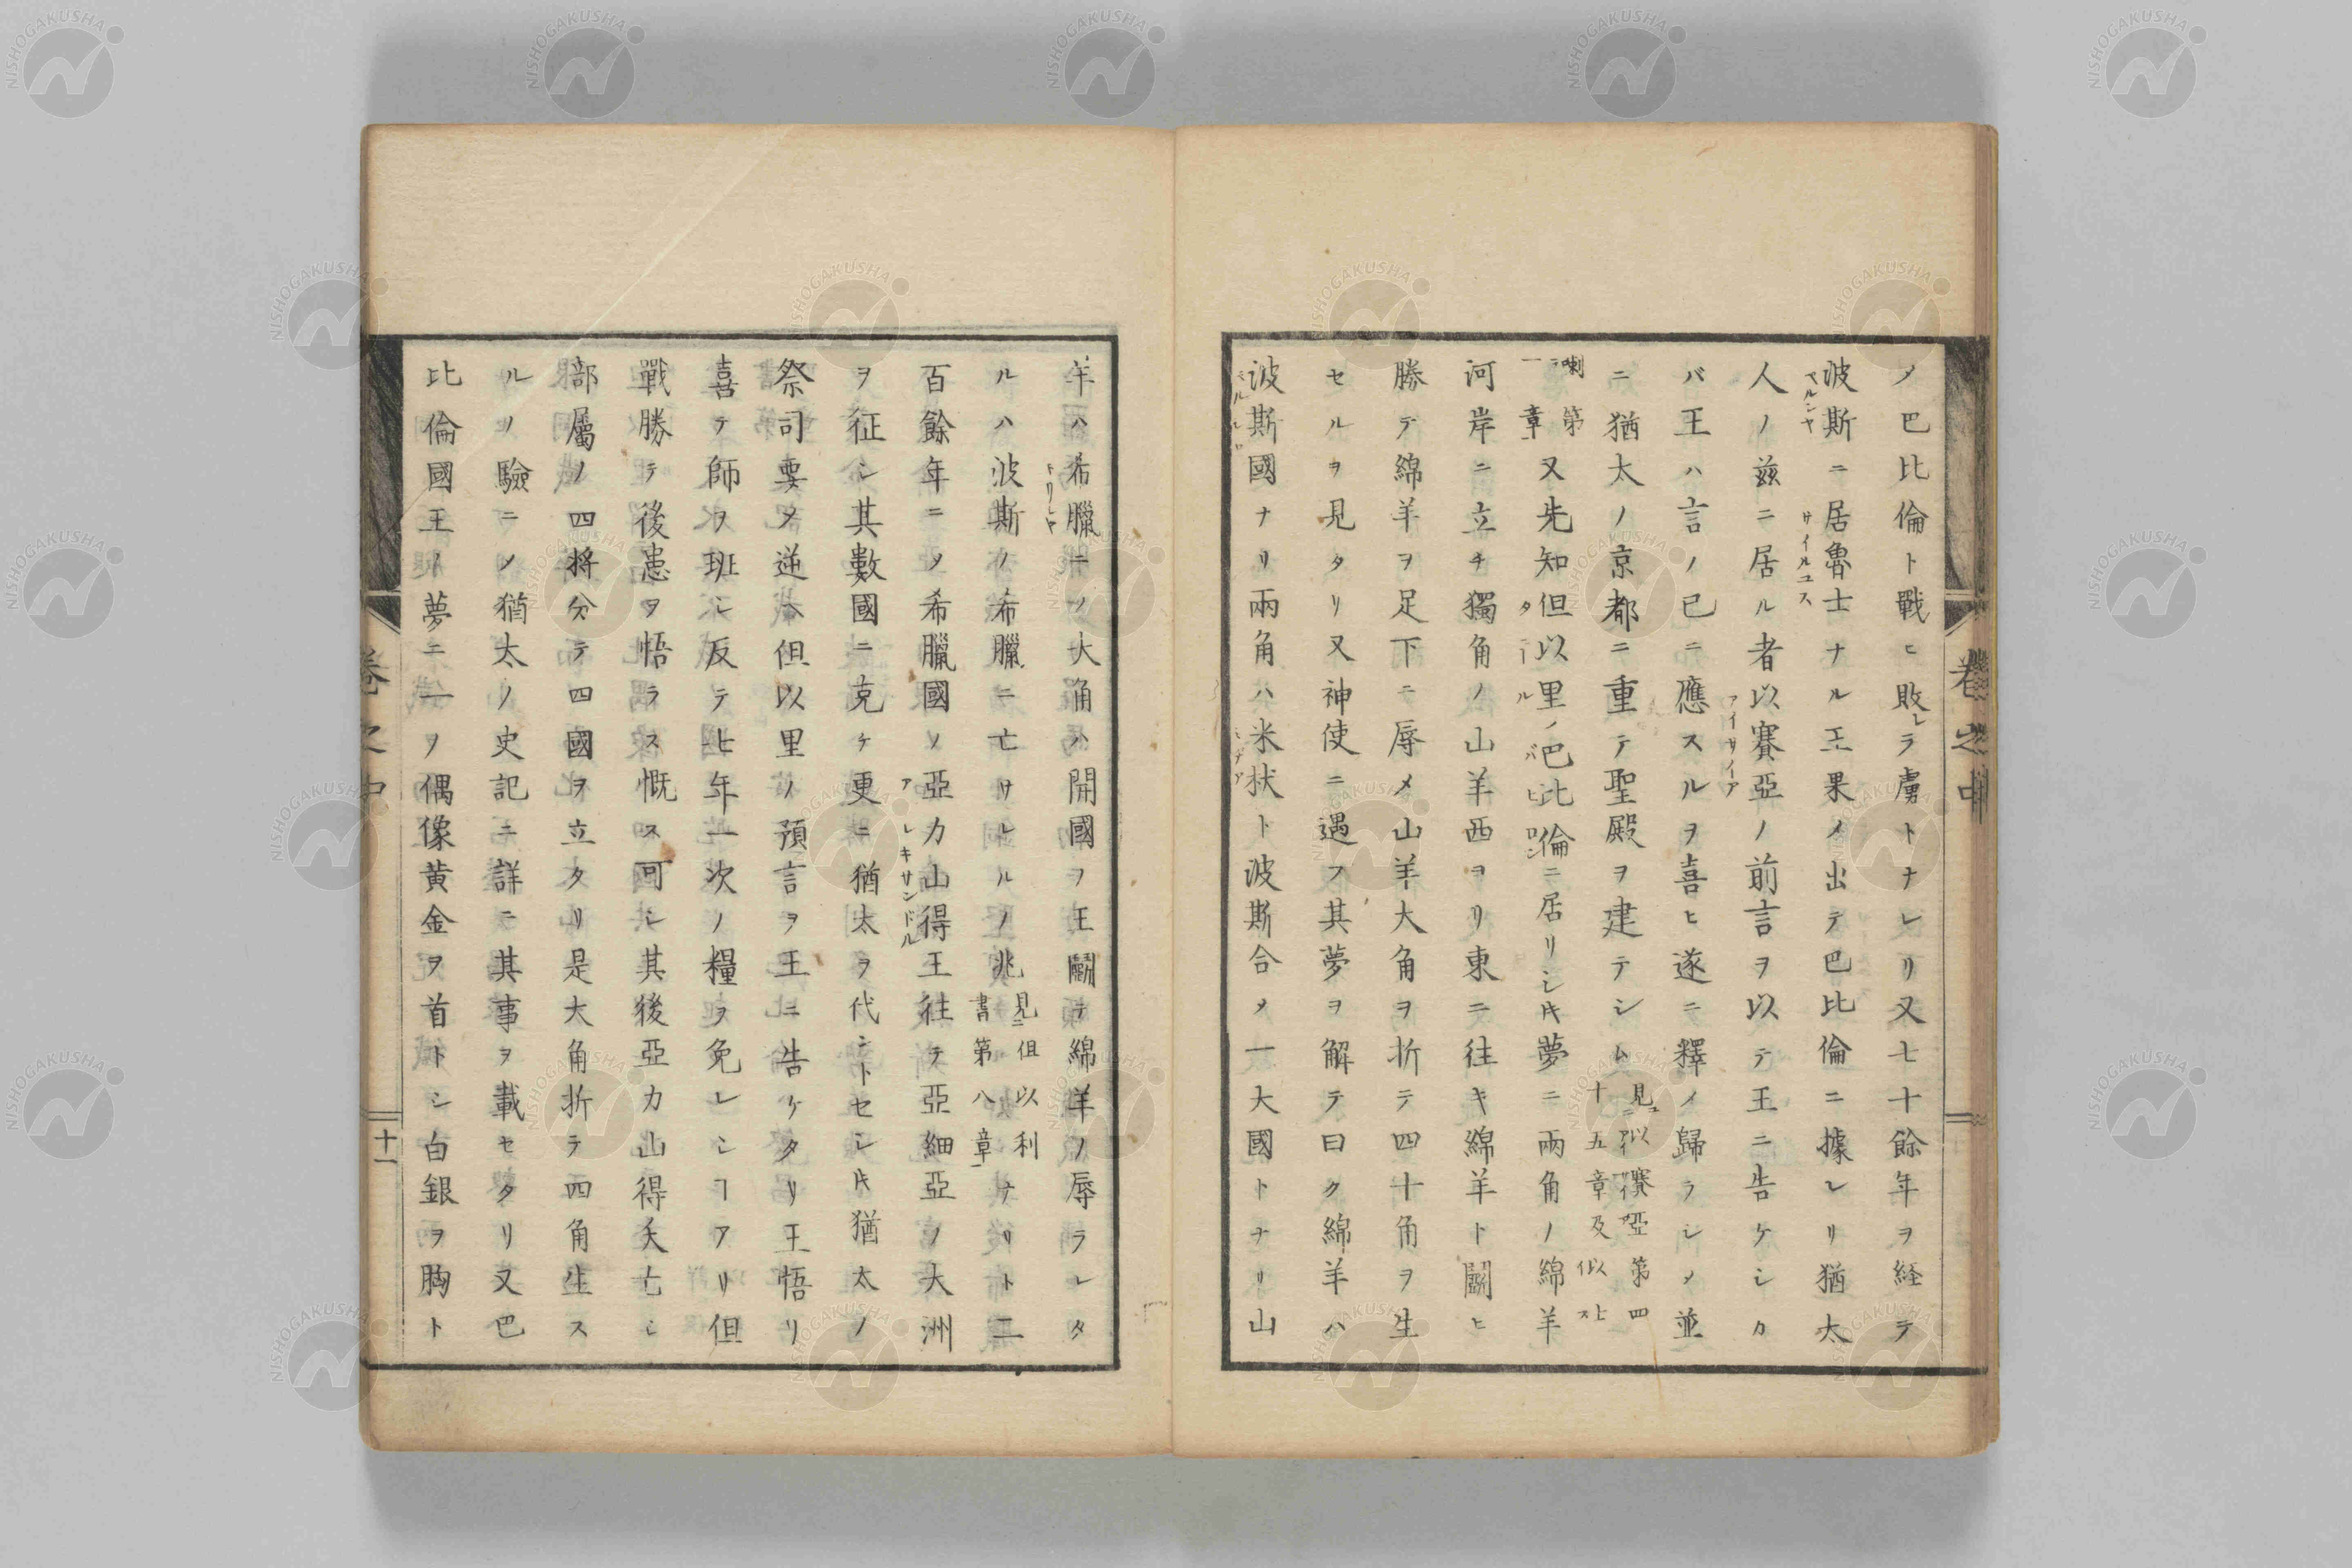 メ巴比倫ト戰ヒ敗レラ虜トナレリ又七十餘年ヲ経テ
波斯ニ居魯士ナル王果メ出テ巴比倫ニ據レリ猶太
人ノ茲ニ居ル者以賽亞ノ前言ヲ以テ王ニ告ケシカ
バ王ハ言ノ已ニ應スルヲ喜ヒ遂ニ釋メ歸ラシメ並
ニ猶太ノ京都ニ重テ聖殿ヲ建テシム見以賽亞第四十五章及似士
喇第一章又先知但以里ノ巴比倫ニ居リシ𪜈夢ニ兩角ノ綿羊
河岸ニ立チ獨角ノ山羊西ヨリ東ニ往キ綿羊ト鬭ヒ
勝テ綿羊ヲ足下ニ辱メ山羊大角ヲ折テ四十角ヲ生
セルヲ見タリ又神使ニ遇フ其夢ヲ解テ曰ク綿羊ハ
波斯國ナリ兩角ハ米狄ト波斯合メ一大國トナリ山
羊ハ希臘ニメ大角ハ開國ヲ王鬭テ綿羊ノ辱ラレタ
ルハ波斯ノ希臘ニ亡サレルノ兆見ニ但以利書第八章ナリト二
百餘年ニメ希臘國ソ亞力山得王往テ亞細亞ノ大洲
ヲ征シ其數國ニ克ケ更ニ猶太ヲ代ントセシ𪜈猶太ノ
祭司要メ逆ヘ但以里ノ預言ヲ王ニ告ケタリ王悟リ
喜テ師ヲ班シ反テ七年一次ノ糧ヲ免レシヿアリ但
戰勝テ後患ヲ悟ラス慨ス可シ其後亞力山得夭亡シ
部屬ノ四將分テ四國ヲ立タリ是大角折テ四角生ス
ルノ驗ニメ猶太ノ史記ニ詳ニ其事ヲ載セタリ又巴
比倫國王ノ夢ニ一ヲ偶像黄金ヲ首トシ白銀ヲ胸ト
卷之中
十一